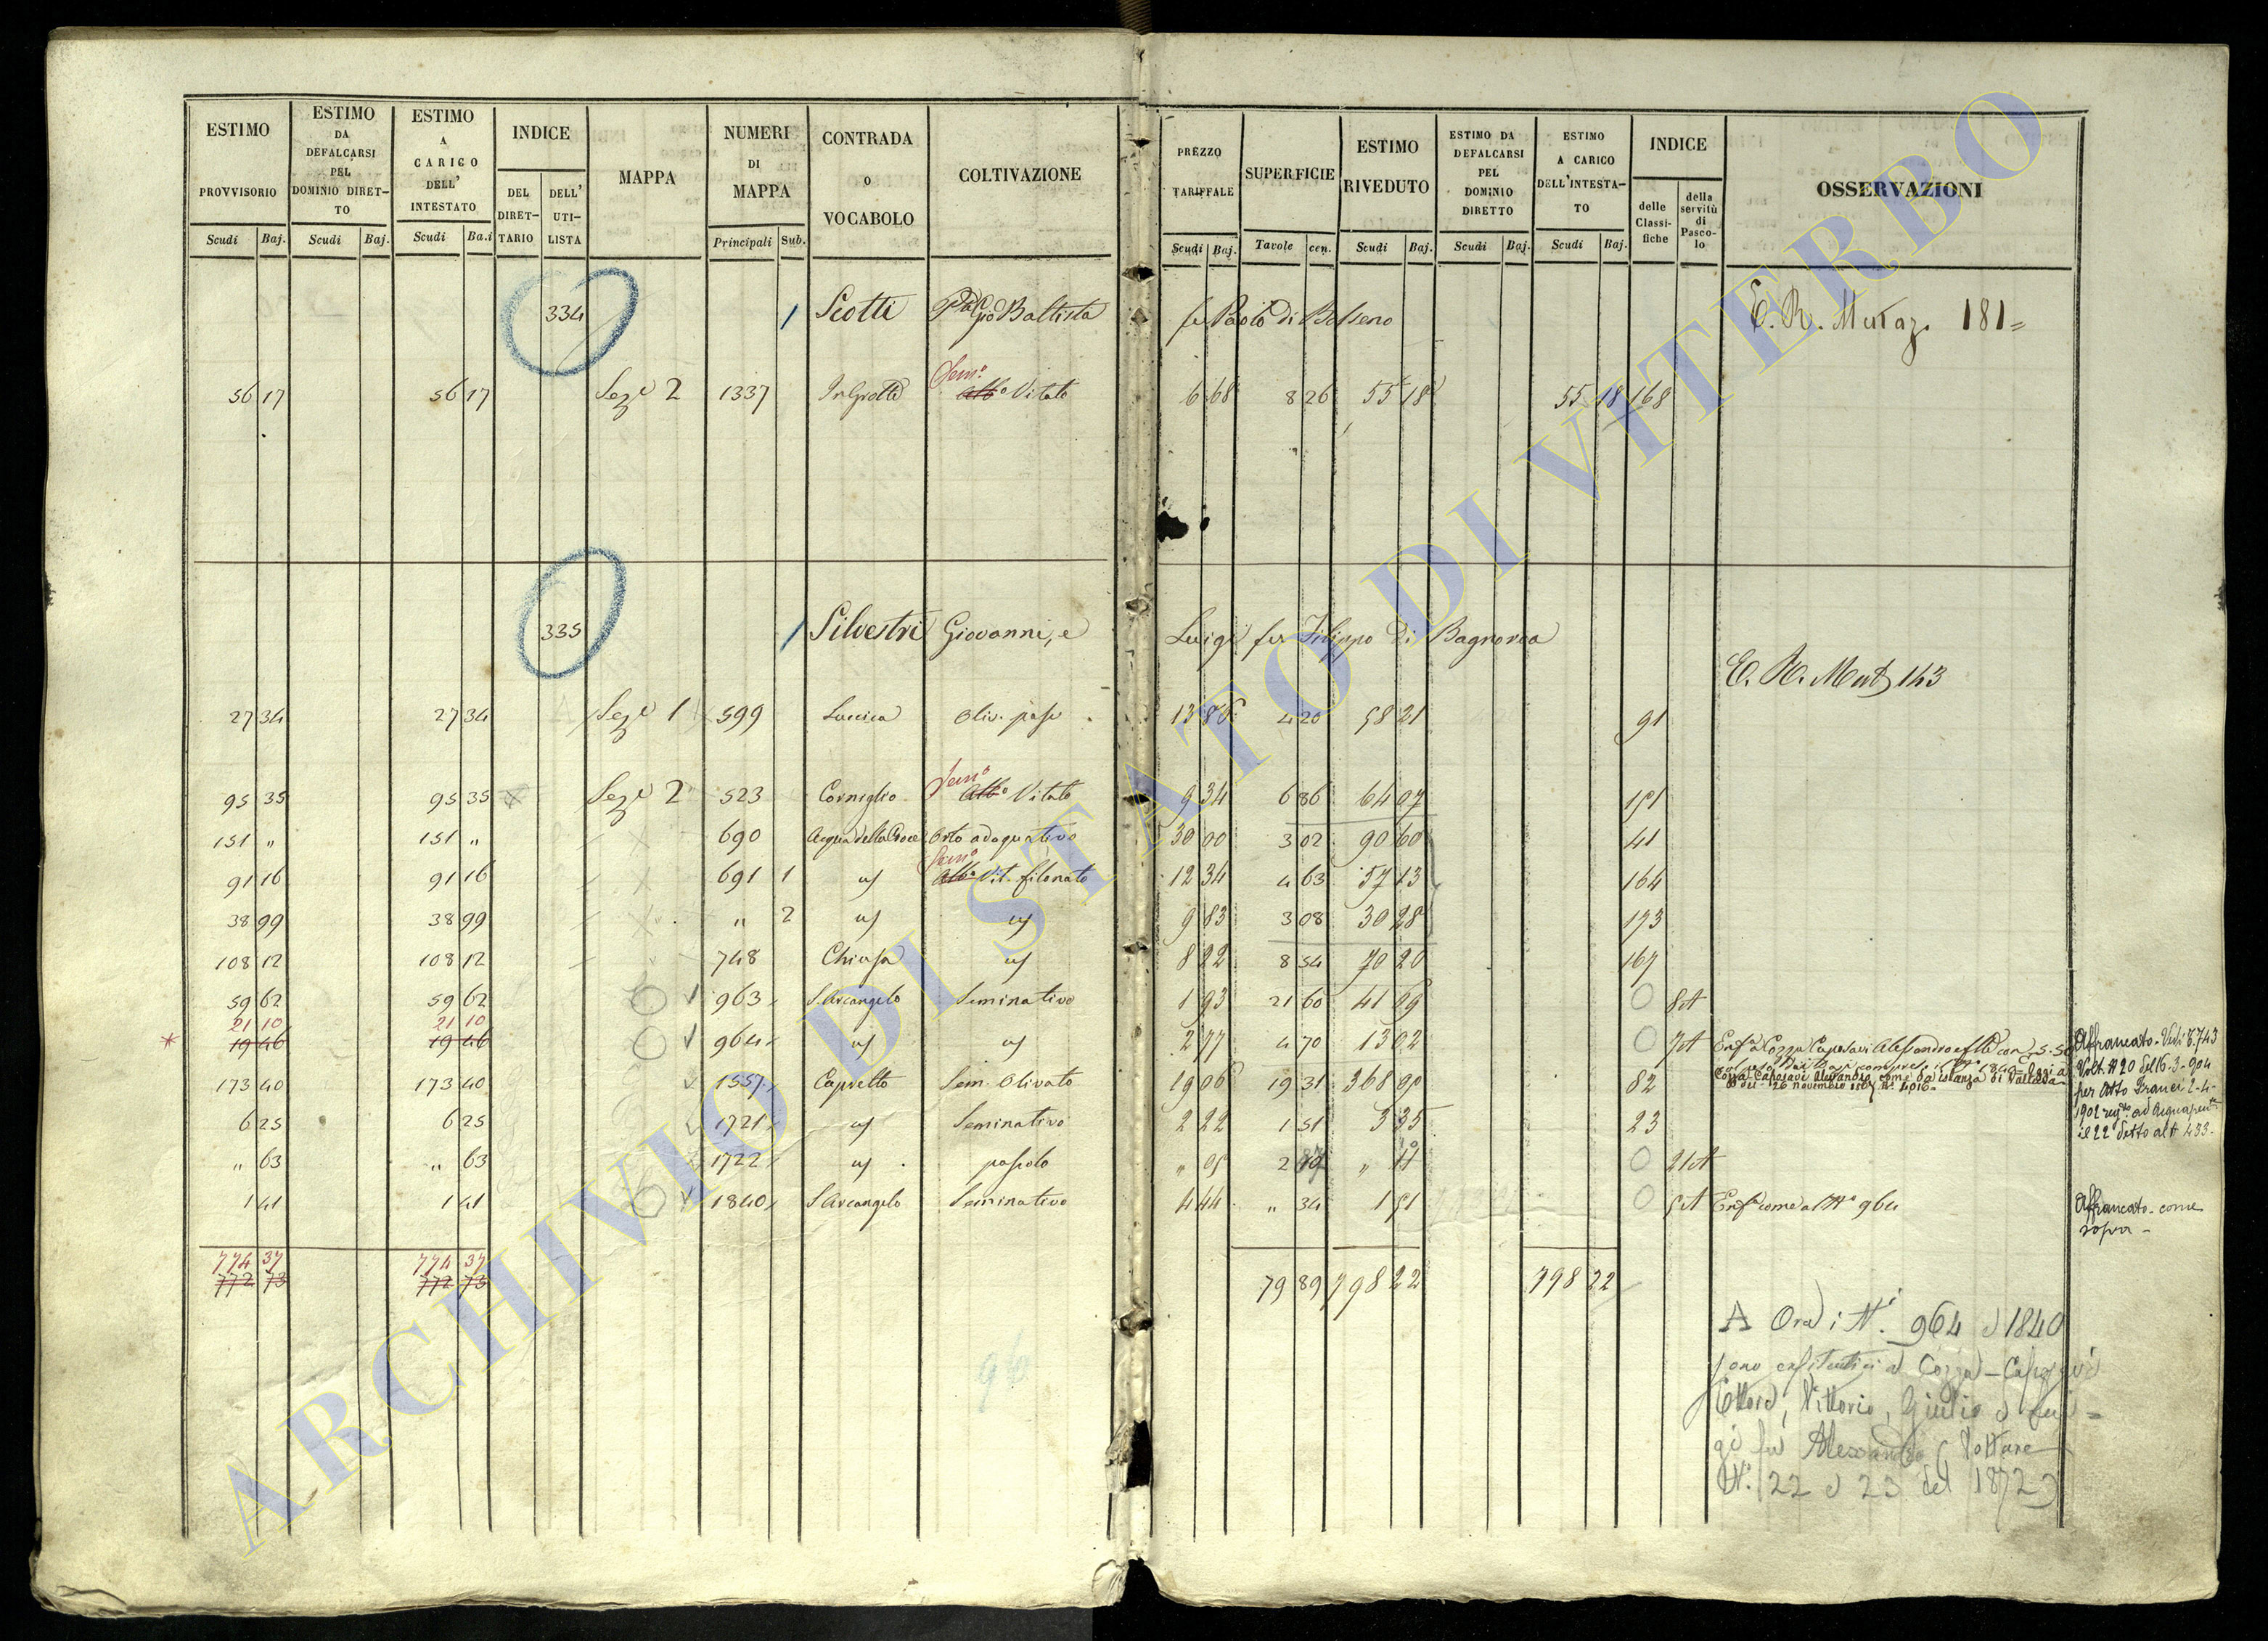 ESTIMO PROVVISORIO Scudi Baj.
ESTIMO DA DEFALCARSI PEL DOMINIO DIRET-TO Scudi Baj.
ESTIMO A CARICO DELL' INTESTATO Scudi Ba.i
INDICE DEL DIRET-TARIO DELL' UTI-LISTA
MAPPA
NUMERI DI MAPPA Principali Sub.
CONTRADA O VOCABOLO
COLTIVAZIONE
PREZZO TARIFFALE Scudi Baj.
SUPERFICIE Tavole cen.
ESTIMO RIVEDUTO Scudi Baj.
ESTIMO DA DEFALCARSI PEL DOMINIO DIRETTO Scudi Baj.
ESTIMO A CARICO DELL'INTESTA-TO Scudi Baj.
INDICE delle Classi-fiche della servitù di Pasco-lo
OSSERVAZIONI
334 Scotti Battista fu Paolo di Bolseno E. R. Mutaz. 181=
56 17 56 17 Seze 2 1337 Sem.o Alb.o Vitato 6 68 8 26 55 18 55 18 168
335 Silvestri Giovanni, e Luigi fu Filippo di Bagnorea
E. R. Mut 143
27 34 27 34 Seze 1 599 Oliv. pasc 13 86 4 20 58 21 91
95 35 95 35 Seze 2 523 Corniglio Sem.o Alb.o Vitato 9 34 6 86 64 07 151
151 " 151 " 690 Acqua della Croce Orto adaquativo 30 00 3 02 90 60 41
91 16 91 16 691 1 Sem.o Alb.o Vit. filonato 12 34 4 63 57 13 164
38 99 38 99 " 2 9 83 3 08 30 28 173
108 12 108 12 748 Chiusa 8 22 8 54 70 20 167
59 62 59 62 963 S. Arcangelo Seminativo 1 93 21 60 41 69 8 A
21 10 21 10
* 19 46 19 46 964 2 77 4 70 13 02 7 A
173 40 173 40 1557 Capretto Sem. Olivato 19 06 19 31 368 00 82
6 25 6 25 1721 Seminativo 2 22 1 51 3 35 23
" 63 " 63 1722 pascolo " 05 2 " 21 A
1 41 1 41 1840 S. Arcangelo Seminativo 4 44 " 34 1 51 5 A Enf.a come al N.o 964
Cozza Caposavi Alessandro come da istanza di
del 26 novembre N. 4016
Affrancato. Vedi
Volt. N 20 del 16-3-904
per Atto Franci 2-4-
1902 ad Acquapen
il 22 detto al N 433.
Affrancato come
sopra
774 37 774 37
772 73 772 73
79 89 798 22 798 22
A Ora i N.i 964 e 1840
sono enfiteutici a Cozza-Caposavi
Ettore, Vittorio, Giulio e Lui=
gi fu Alessandro (Volture
N. 22 e 23 del 1872)
96
ARCHIVIO DI STATO DI VITERBO